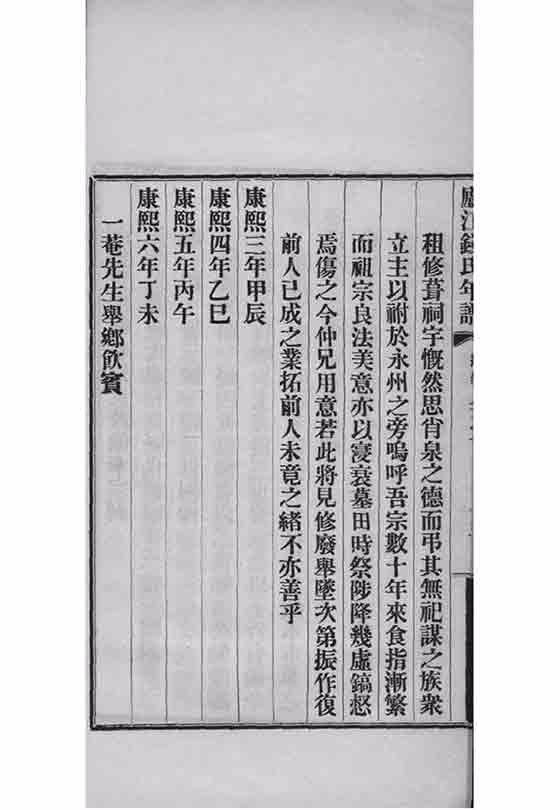 廬江錢氏年譜
租修葺祠宇慨然思肖泉之德而弔其無祀謀之族衆
立主以祔於永州之旁嗚呼吾宗數十年來食指漸繁
而祖宗良法美意亦以寖衰墓田時祭陟降幾虛鎬惄
焉傷之今仲兄用意若此將見修廢舉墜次第振作復
前人已成之業拓前人未竟之緒不亦善乎
康熙三年甲辰
康熙四年乙巳
康熙五年丙午
康熙六年丁未
一菴先生舉鄉飲賓